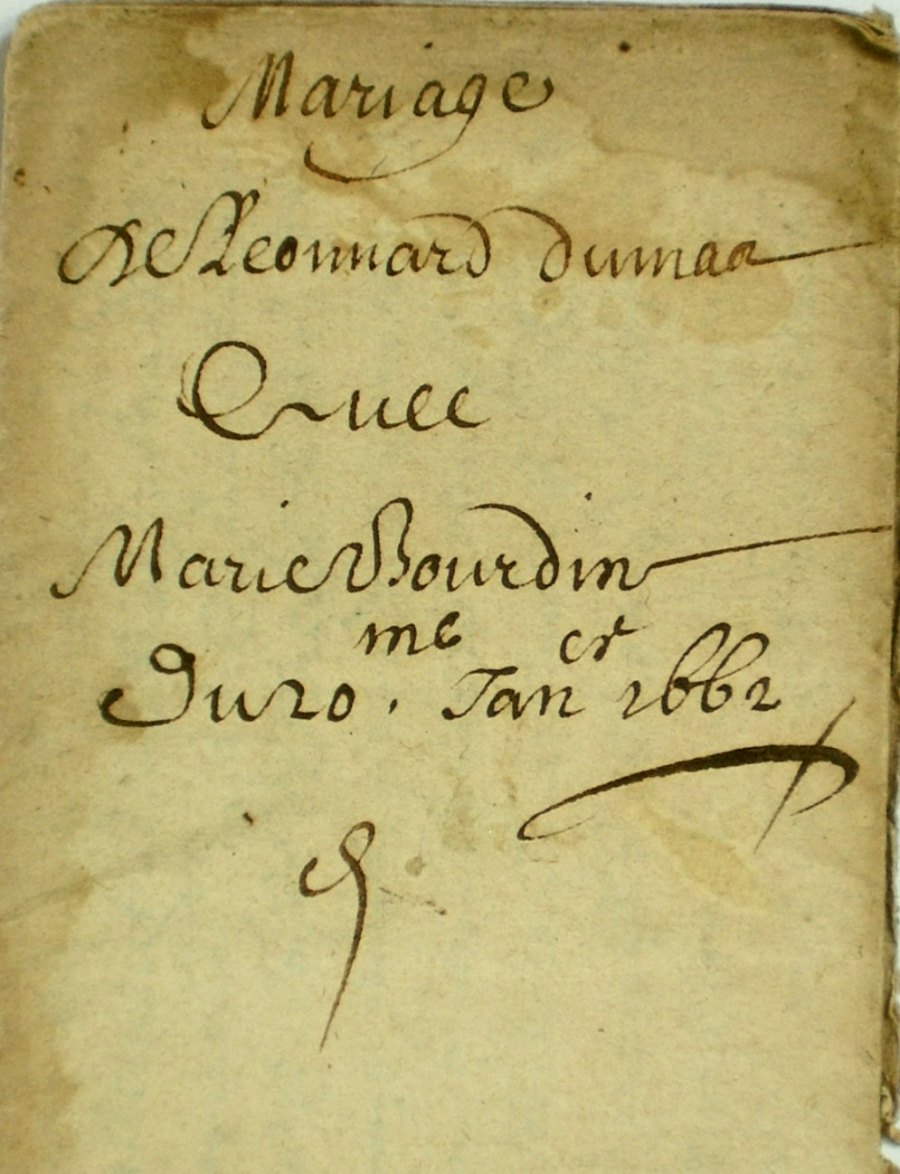 Mariage
De Leonnard dumas
Avec
Marie Bourdin
Du 20.me Janer 1662